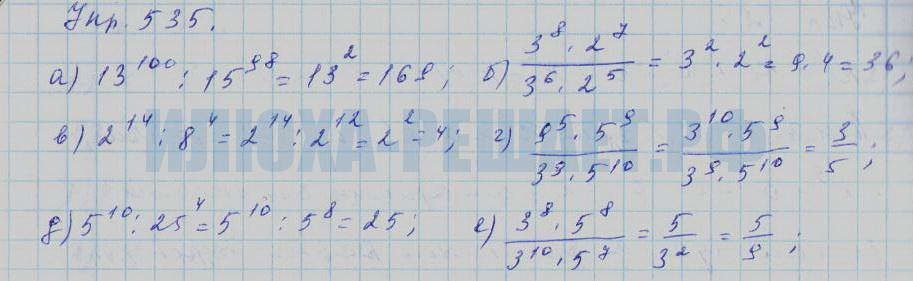 Упр. 535.
а) 13^100 : 15^98 = 13^2 = 169; б) (3^8 · 2^7)/(3^6 · 2^5) = 3^2 · 2^2 = 9 · 4 = 36;
в) 2^14 : 8^4 = 2^14 : 2^12 = 2^2 = 4; г) (9^5 · 5^9)/(3^9 · 5^10) = (3^10 · 5^9)/(3^9 · 5^10) = 3/5;
ИЛЮХА-РЕШАЕТ.РФ
д) 5^10 : 25^4 = 5^10 : 5^8 = 25; е) (3^8 · 5^8)/(3^10 · 5^7) = 5/3^2 = 5/9;